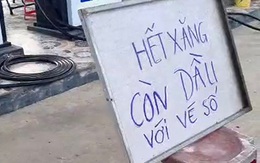 HẾT XĂNG
CÒN DẦU
VỚI VÉ SỐ